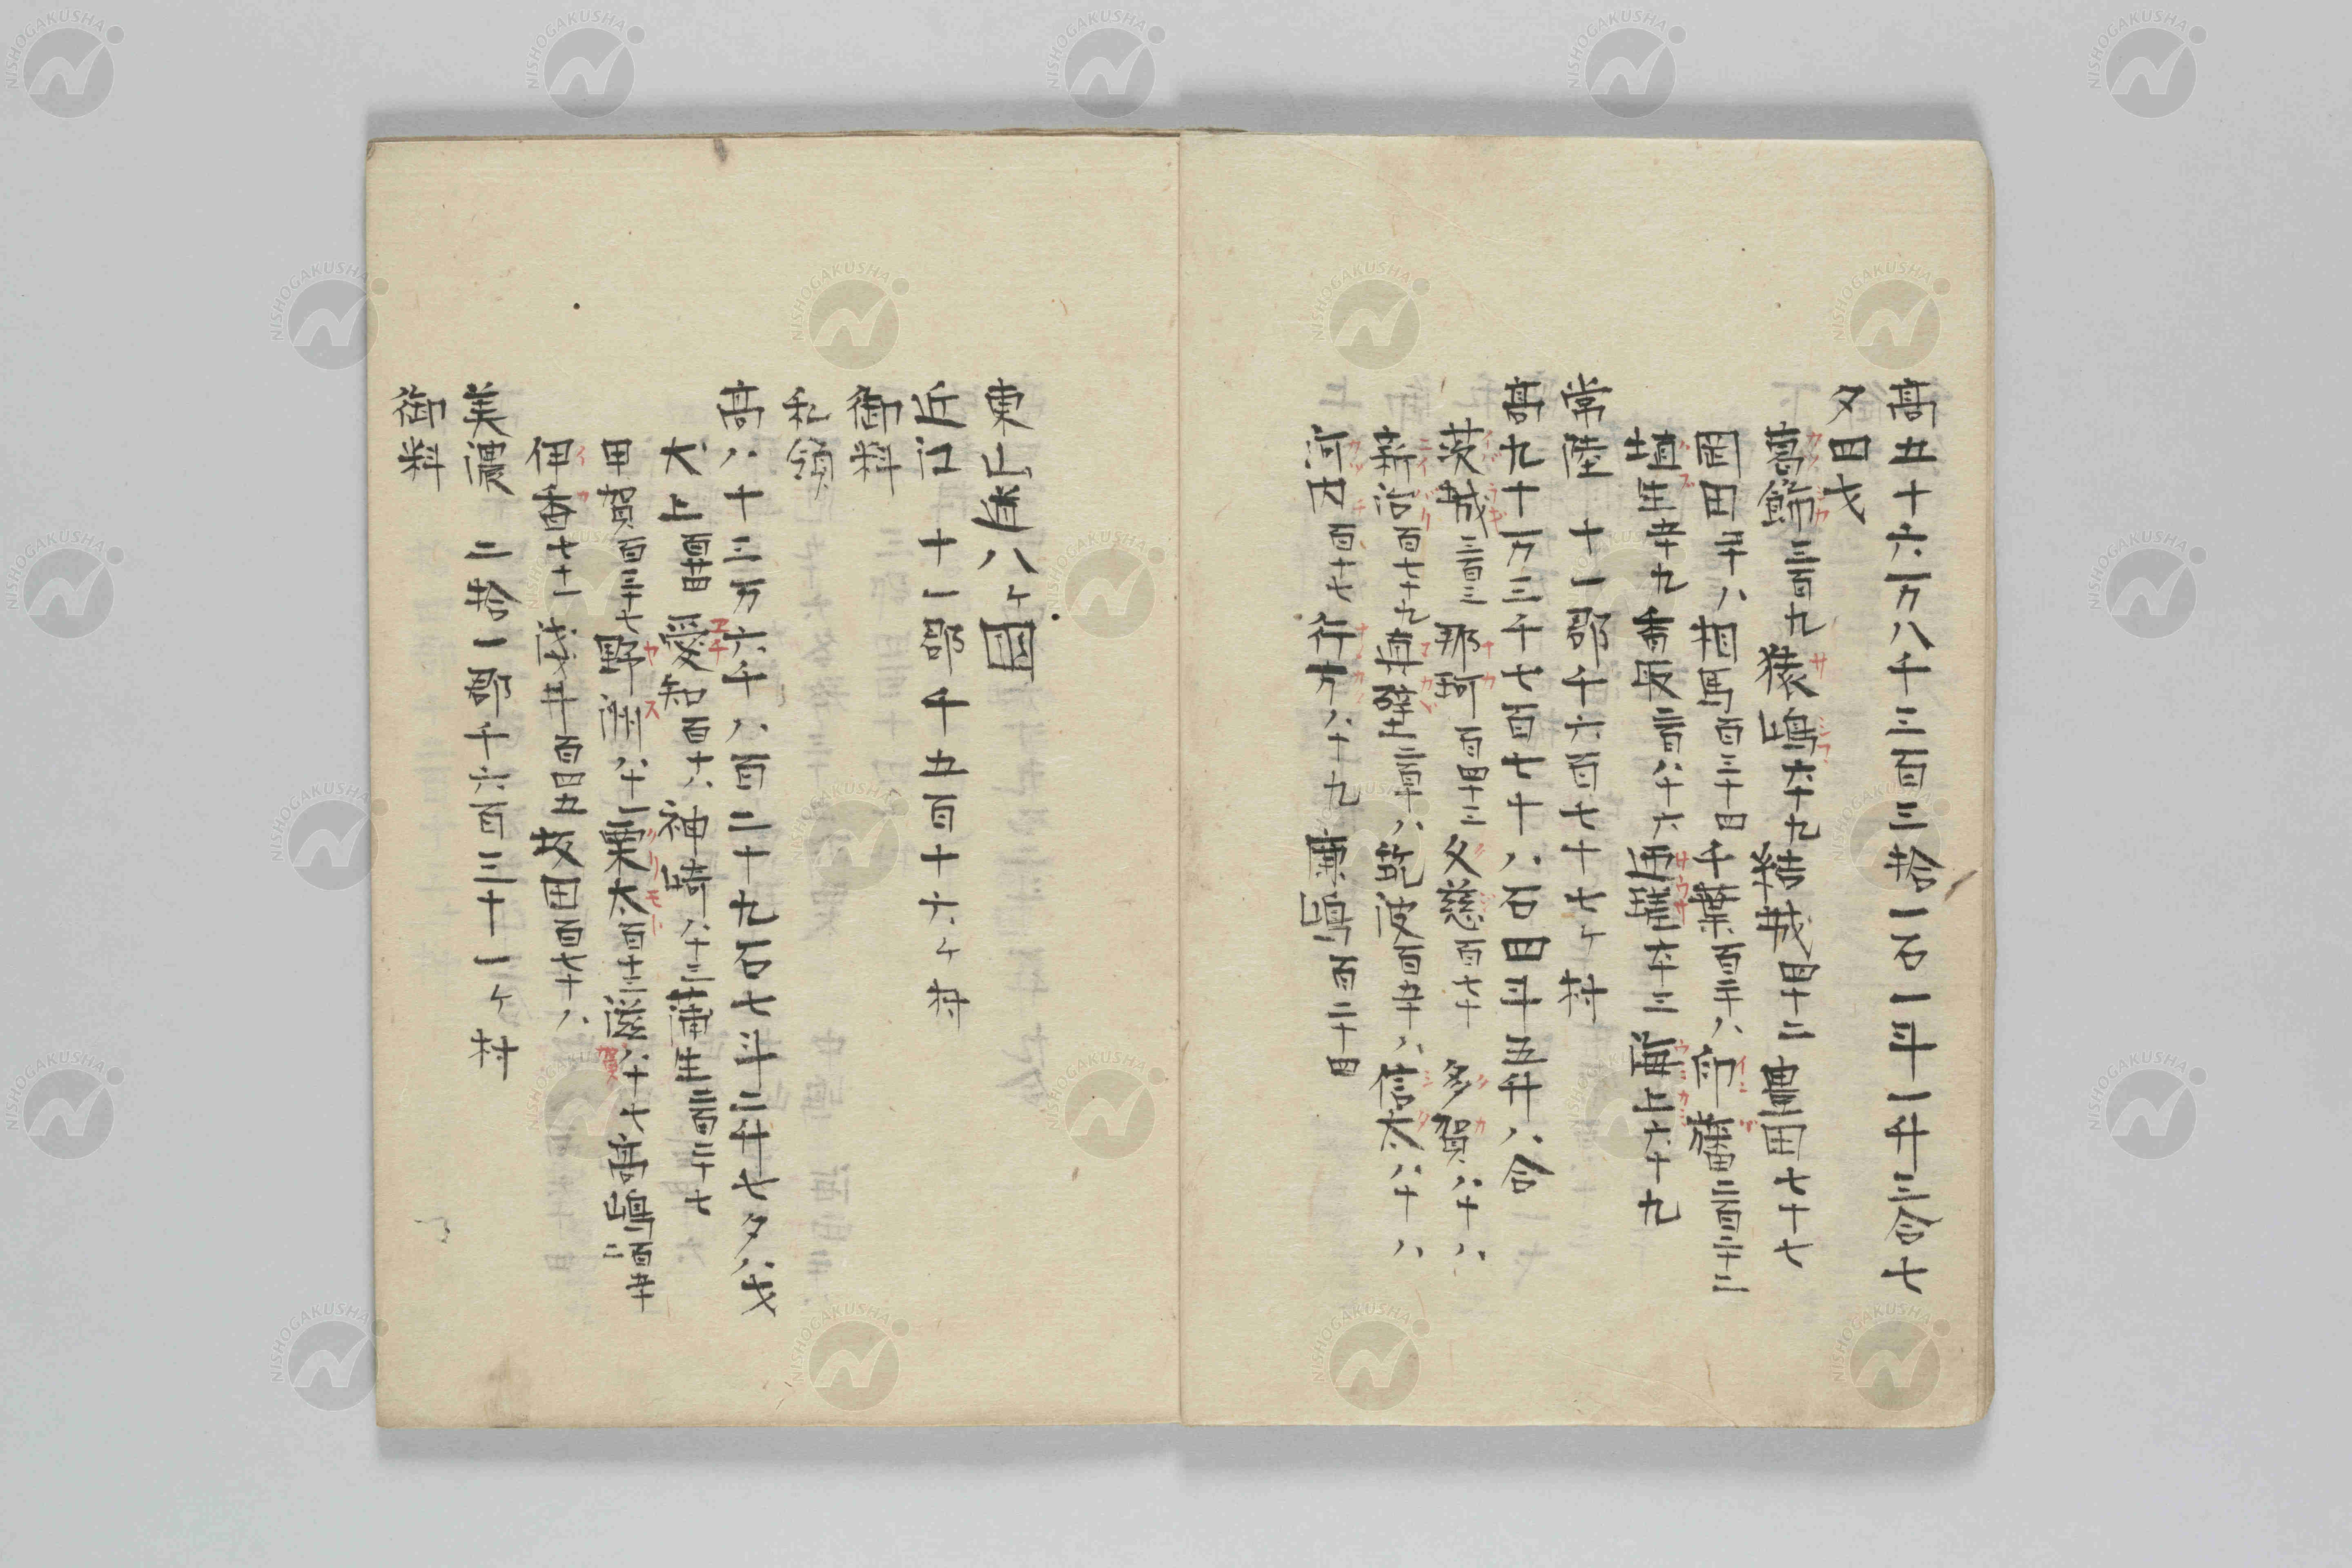 高五十六万八千三百三拾一石一斗一升三合七
夕四戈
葛飾三百九猿嶋六十九結城四十三豊田七十七
岡田三十八相馬百三十四千葉百三十八印旛二百三十二
埴生五十九香取三百八十六迊瑳六十三海上六十九
常陸 十一郡千六百七十七ケ村
高九十万三千七百七十八石四斗五升八合
茨城三百三那珂百四十三久慈百七十多賀八十八
新治百七十九真壁二百十八筑波百五十八信太八十八
河内百十七行方八十九鹿嶋百二十四
東山道八ケ国
近江 十一郡千五百十六ケ村
御料
私領
高八十三万六千八百二十九石七斗二升七夕八戈
犬上百四十愛知百十八神崎八十三蒲生二百三十七
甲賀百三十七野洲八十一栗太百十二滋賀八十七高嶋百五十二
伊香七十一浅井百四五坂田百七十八
美濃 二拾一郡千六百三十一ケ村
御料